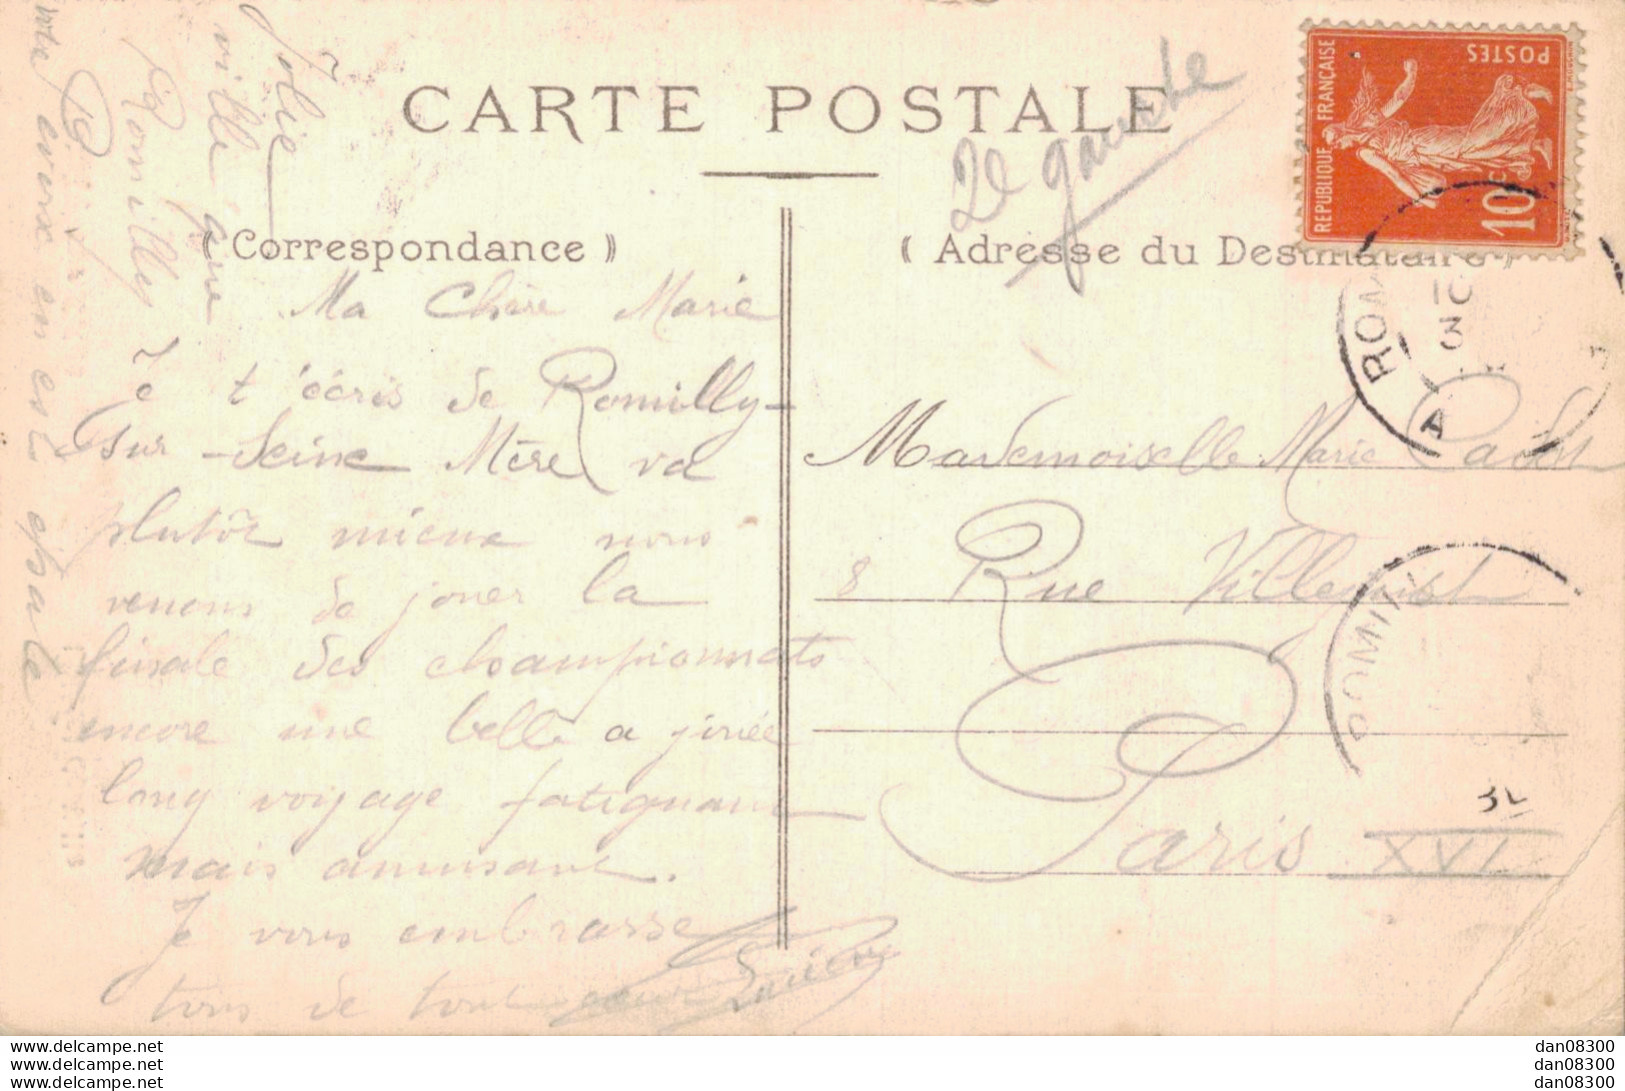 CARTE POSTALE
2e gauche
( Correspondance )
( Adresse du Destinataire )
REPUBLIQUE FRANÇAISE
POSTES
10 C
Jolie
ville que
Romilly
est épatée
Ma Chère Marie
Je t'écris de Romilly-
sur-Seine Mère va
plutôt mieux nous
venons de jouer la
finale des championnats
encore une belle
long voyage fatiguant
mais amusant.
Je vous embrasse
tous de tout coeur
Mademoiselle Marie
8 Rue Villejust
Paris XVI
ROM
10
3
A
ROMIL
www.delcampe.net
www.delcampe.net
www.delcampe.net
dan08300
dan08300
dan08300